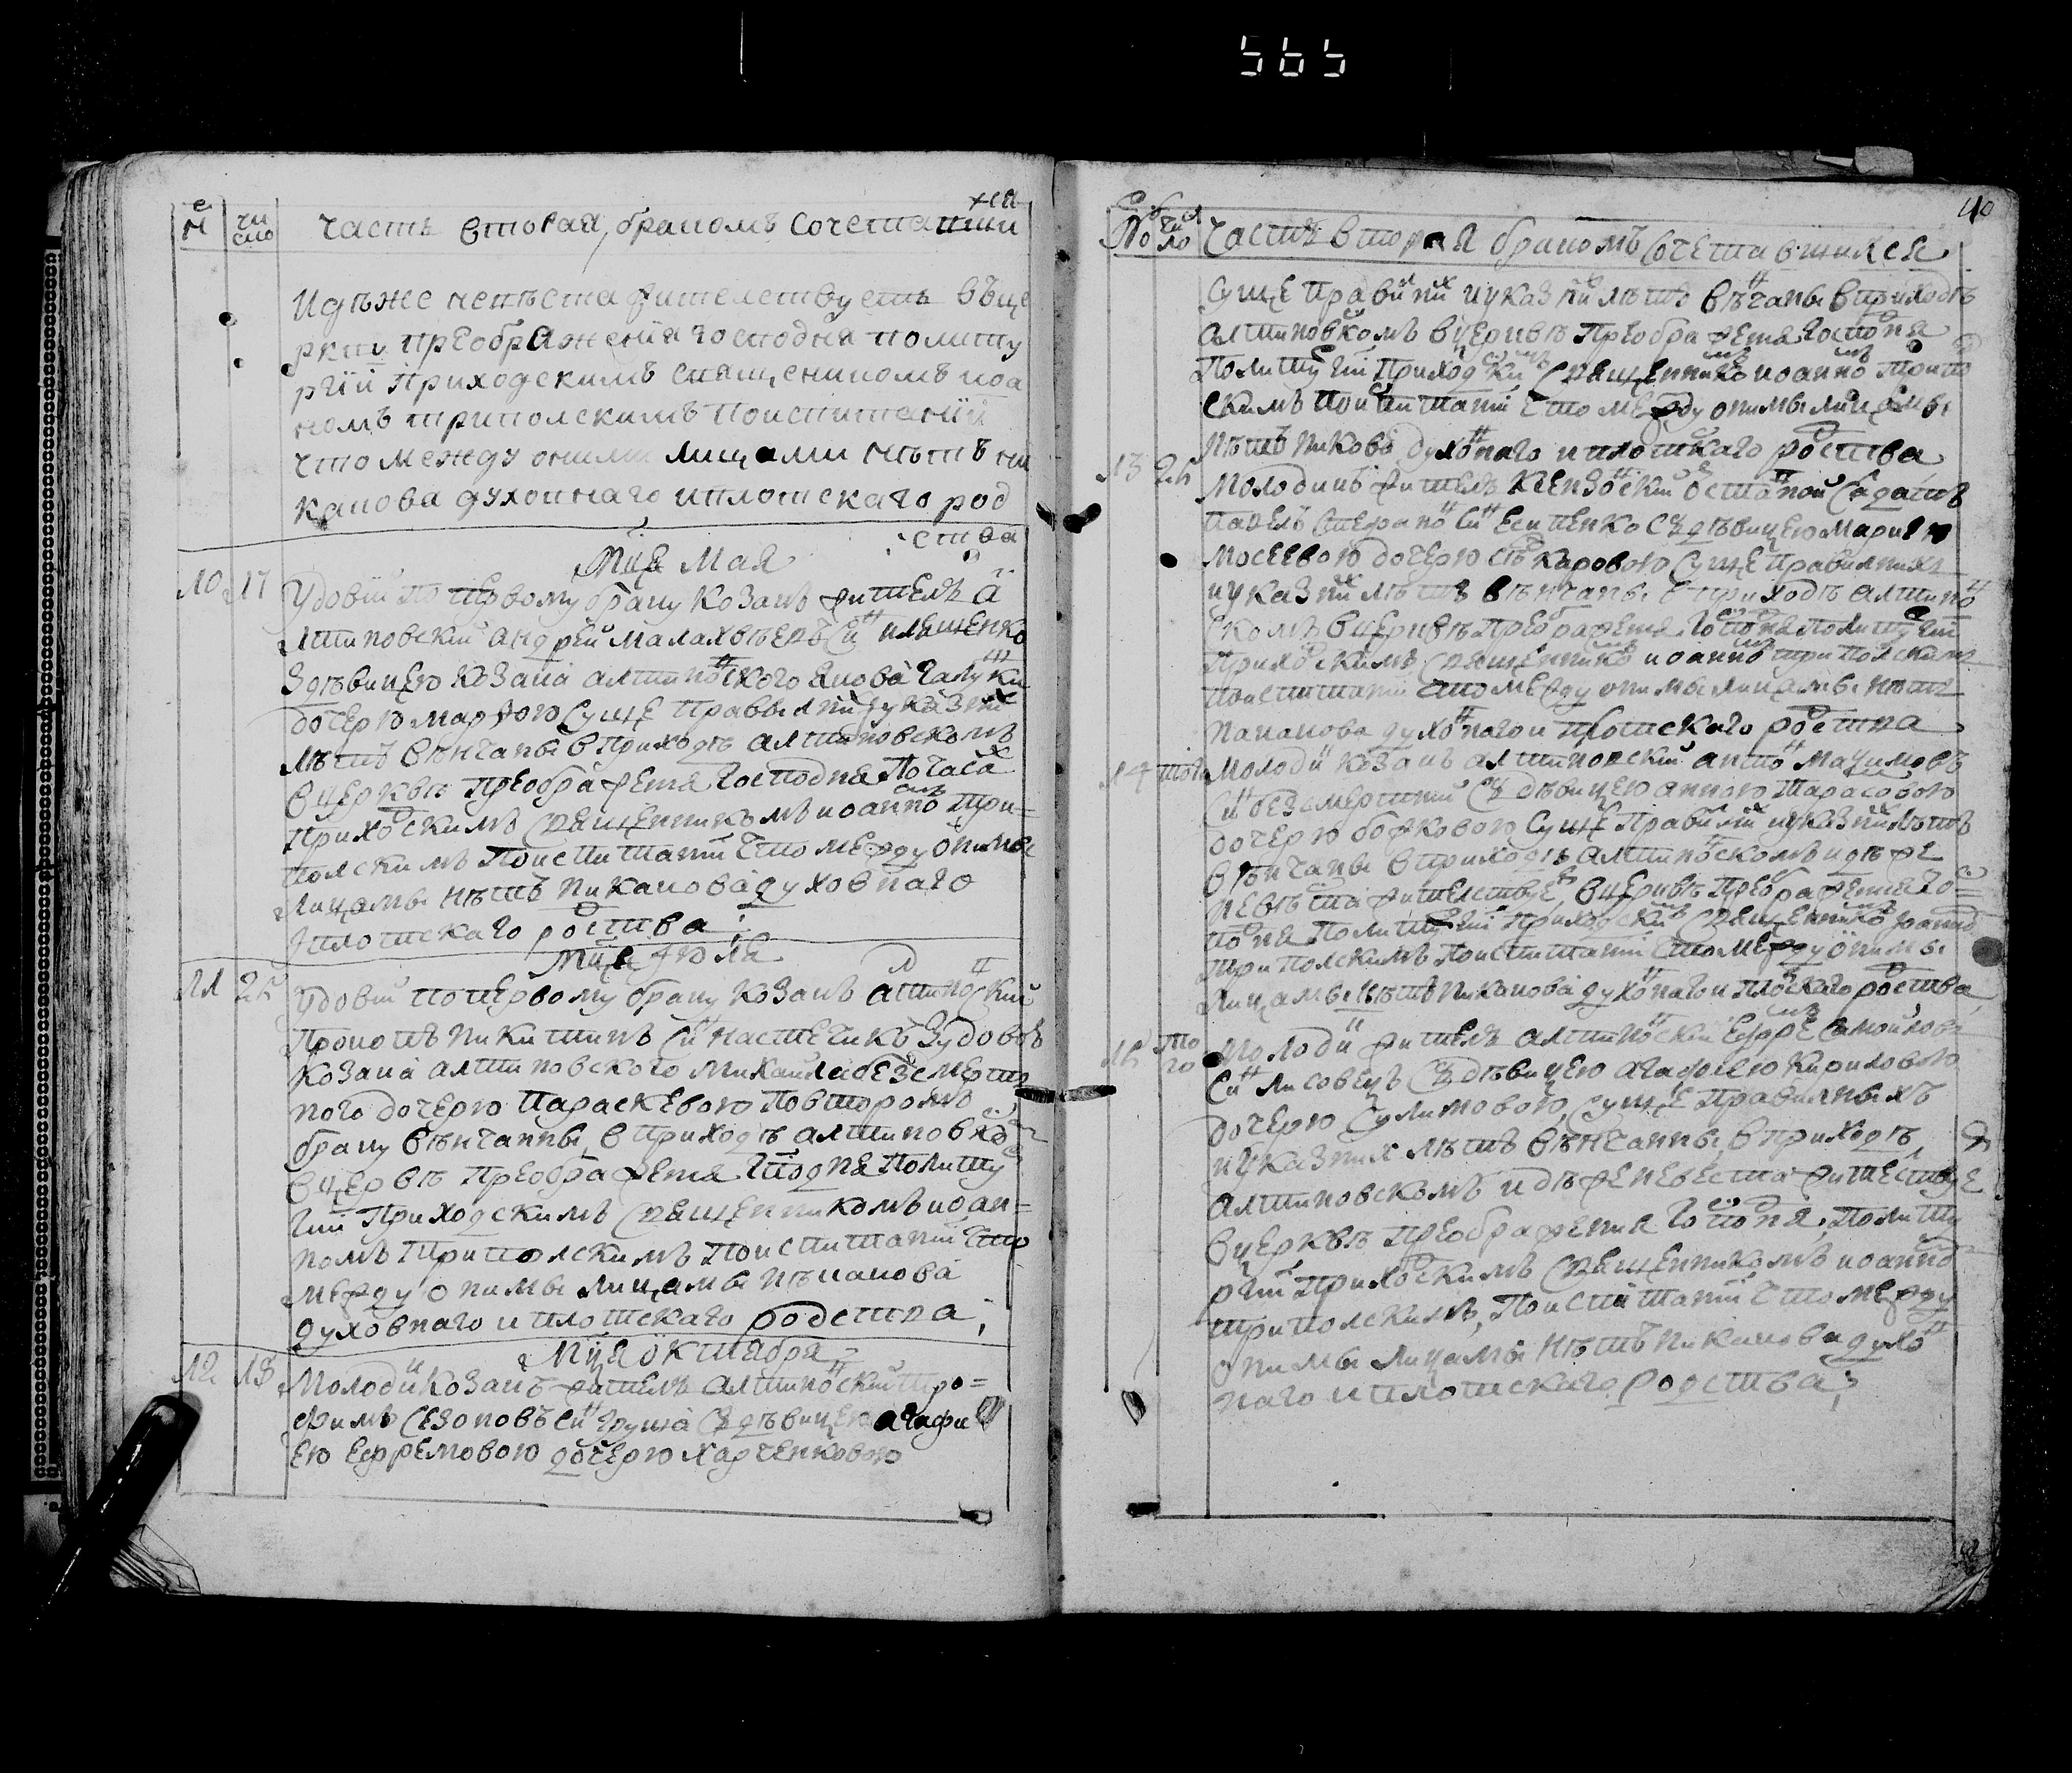 565
хся
№ чи
сло часть вторая, браком сочетавши
Идѣже невѣста жителствуетъ въ це
ркви преображения господня политу
ргїи приходскимъ священикомъ иоа
номъ триполскимъ поиспитанїй
что между оними лицами нѣтъ ни
какова духовнаго иплотскаго род
ства
Мца Мая
10 17 Удовїй по первому браку козакъ житель а
лтиновскїй андрей малахвѣевъ сн илященко
здѣвицею козака алтиновского якова галу
дочерю марθою суще правилнй указнй
лѣтъ вѣнчаны вприходѣ алтиновскомъ
вцерквѣ преображения господня по часа
приходскимъ священикомъ иоанно три=
полскимъ поиспитанїи что между онимы
лицамы нѣтъ никакова духовнаго
иплотскаго родства;
Мця июля
11 25 Удовїй попервому браку козакъ алтиновскїй
прокопъ никитинъ сн зудовою
козака алтиновского михайла безсмерт
ного дочерю параскевою повторомъ
браку вѣнчанны, вприходѣ алтиновко
вцерквѣ преображения гподня политу
гїй приходскимъ священникомъ иоан=
номъ триполскимъ поиспитанїй что
между онимы лицамы нѣ никакова
духовнаго иплотскаго родства;
Мця октября
12 18 Молодй козакъ житель алтиновскїй тро=
фимъ сезоновъ сн груша здѣвицею агафи
ею ефремовою дочерю харченковою
40
№ число Часть вторая бракомъ сочетавшихся
суще правилнй иуказнй лѣтъ вѣнчаны вприходѣ
алтиновкомъ вцерквѣ преображения господня
политургїи приходски священнико иоанно трипо
скимъ поиспитанїи что между онимы лицамы
нѣтъ никова духовнаго иплотскаго родства
13 25 Молодикъ житель
павелъ стефановъ сн есипенко здѣвицею мариею
мосеевою дочерю суще правилнихъ
иуказнй лѣтъ вѣнчаны вприходѣ алтино
скомъ вцерквѣ преображения господня политургїи
приходскимъ священнико иоанно триполскимъ
поиспитанїи что между онимы лицамы нѣтъ
никакова духовнаго иплотскаго родства
14 того Молодй козакъ алтиновскїй анто мазимовъ
сн безсмертнїй здѣвицею анною тарасовою
дочерю божковою суще правилнй иуказнй лѣтъ
вѣнчаны вприходѣ алтиноскомъ идѣже
невѣста жителствуе, вцерквѣ преображения го
подня политургїи приходски священнико иоанно
триполскимъ поиспитанїи что между онимы
лицамы нѣтъ никакова духовнаго и плоскаго родства,
15 то
го Молодй житель алтиновскїй ефре самойловъ
сн лисовецъ здѣвицею агафиею кириловою
дочерю сулимовою, суще правилныхъ
иуказних лѣтъ вѣнчанны, вприходѣ
алтиновскомъ идѣже невеста жителствуе
вцерквѣ преображения господня, политу
ргїи приходскимъ священникомъ иоанно
триполскимъ, поиспитанїй что между
онимы лицамы нѣтъ никакова духо
наго иплотскаго родства;